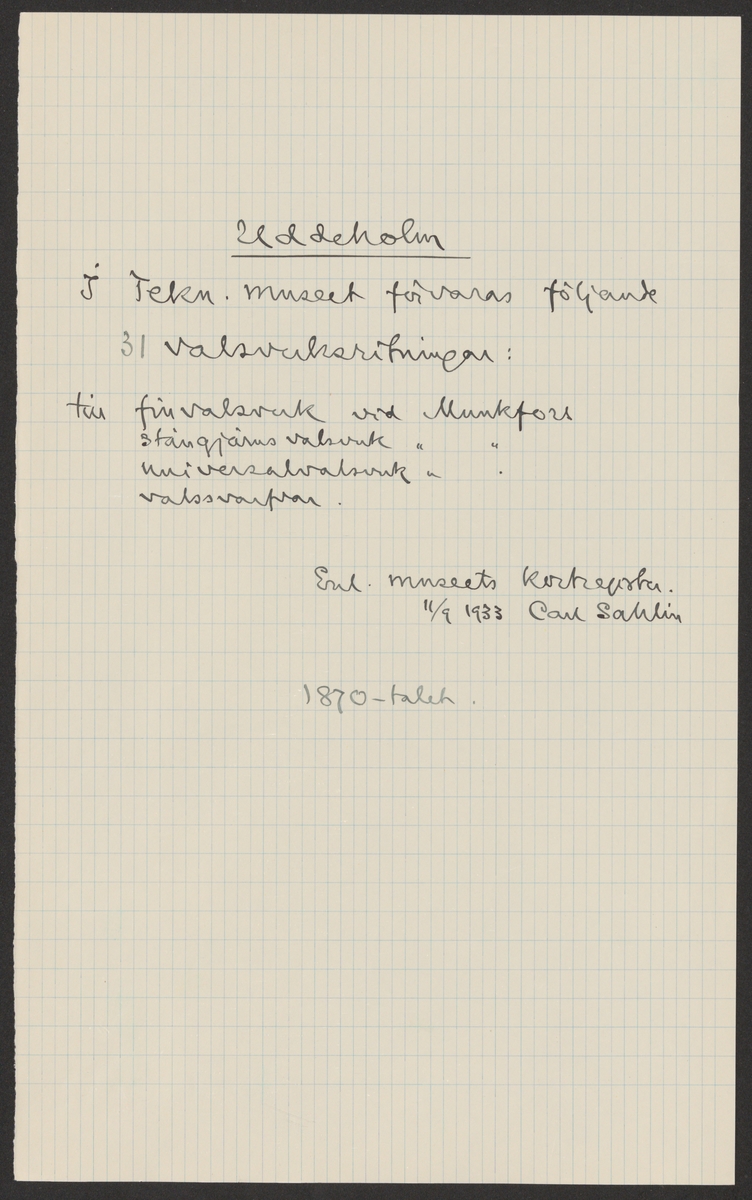 Uddeholm
I Tekn. museet förvaras följande
31 valsverksritningar:
till finvalsverk vid Munkfors
stångjärnsvalsverk " "
universalvalsverk " "
valssvarfvar.
Enl. museets kortregister.
11/9 1933 Carl Sahlin
1870-talet.